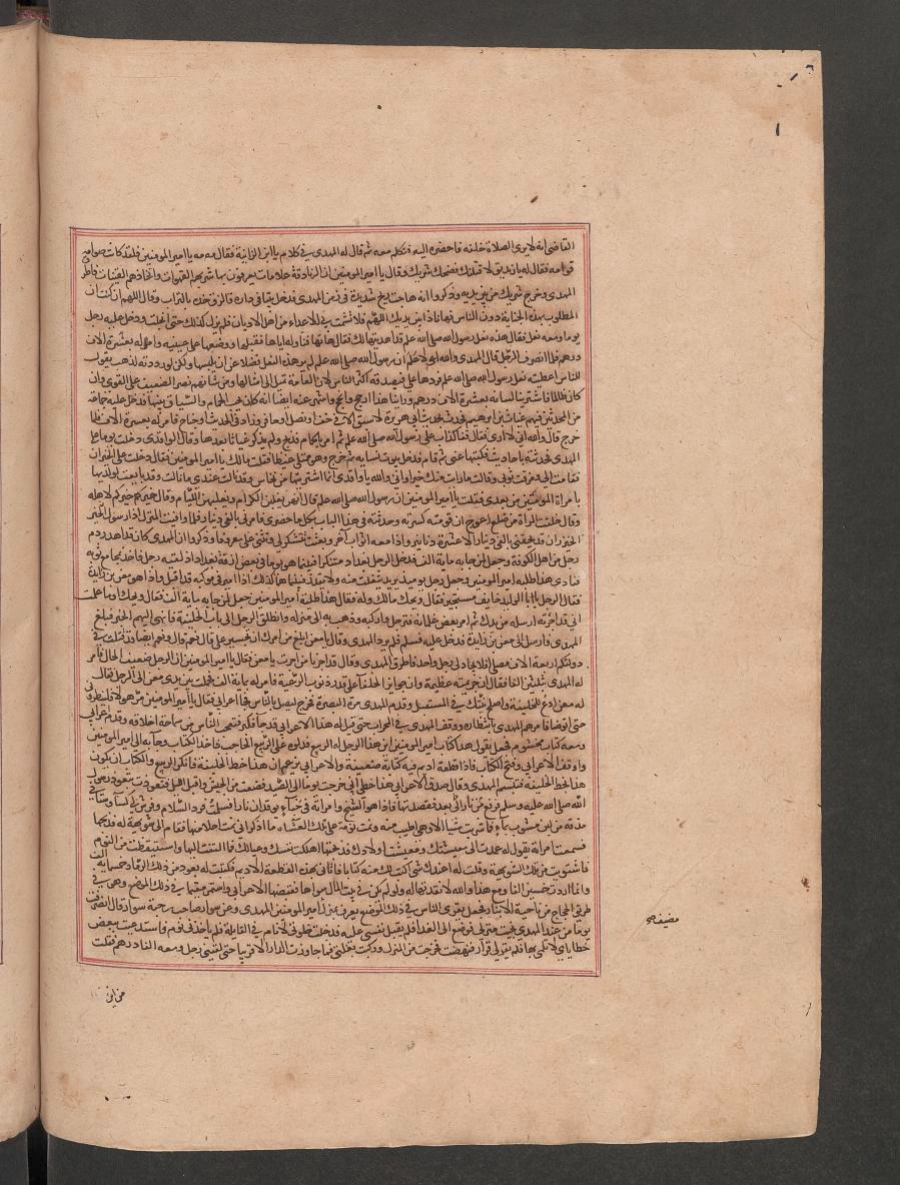 القاضي انه لا يرى الصلاة خلفه فاحضره اليه فتكلم معه ثم قال له المهدي في كلامه يا ابن الزانية فقال مه مه يا امير المومنين فلقد كانت صوامه
قوامه فقال له يا زنديق لاقتلنك فضحك شريك وقال يا امير المومنين ان للزنادقة علامات يعرفون بها شربهم القهوات واتخاذهم القينات فاطرق
المهدي وخرج شريك من بين يديه وذكروا انه هاجت ريح شديدة في زمن المهدي فدخل بيتا في داره فالزق خده بالتراب وقال اللهم ان كنت انا
المطلوب بهذه الجناية دون الناس فها انا ذا بين يديك اللهم فلا تشمت بي الاعداء من اهل الاديان فلم يزل كذلك حتى انجلت ودخل عليه رجل
يوما ومعه نعل فقال هذه نعل رسول الله صلى الله عليه قد اهديتها لك فقال هاتها فناوله اياها فقبلها ووضعها على عينيه وامر له بعشرة الاف
درهم فلما انصرف الرجل قال المهدي والله اني لاعلم ان رسول الله صلى الله عليه لم ير هذه النعل فضلا عن ان يلبسها ولكن لو رددته لذهب يقول
للناس اعطيته نعل رسول الله صلى الله عليه فردها علي فيصدقه اكثر الناس لان العامة تميل الى امثالها ومن شانهم نصر الضعيف على القوي وان
كان ظالما فاشترينا لسانه بعشرة الاف درهم وراينا هذا ارجح وانجح واشتهر عنه ايضا انه كان يحب الحمام والسباق بينها فدخل عليه جماعة
من المحدثين فيهم غياث بن ابراهيم فحدثه بحديث ابي هريرة لا سبق الا في خف او نصل او حافر وزاد في الحديث او جناح فامر له بعشرة الاف فلما
خرج قال والله اني لا ارى قفاك قفا كذاب على رسول الله صلى الله عليه ثم امر بالحمام فذبح ولم يذكر غياثا بعدها وقال الواقدي دخلت يوما على
المهدي فحدثته باحاديث فكتبها عني ثم قام فدخل بيوت نسايه ثم خرج وهو ممتلئ غيظا فقلت مالك يا امير المومنين فقال دخلت على الخيزران
فقامت الي ومزقت ثوبي وقالت ما رايت منك خيرا واني والله يا واقدي انما اشتريتها من نخاس وقد نالت عندي ما نالت وقد بايعت لولديها
بامرة المومنين من بعدي فقلت يا امير المومنين ان رسول الله صلى الله عليه قال انهن يغلبن الكرام ويغلبهن اللئام وقال خيركم خيركم لاهله
وقال خلقت المراة من ضلع اعوج ان قومته كسرته وحدثته في هذا الباب بكل ما حضرني فامر لي بالفي دينار فلما وافيت المنزل اذا رسول
الخيزران قد لحقني بالفي دينار الا عشرة دنانير واذا معه اثواب اخر وبعثت تشكرني وتثني علي معروفا وذكروا ان المهدي كان قد اهدر دم
رجل من اهل الكوفة وجعل لمن جا به ماية الف فدخل الرجل بغداد متنكرا فبينما هو يوما في بعض ازقة بغداد اذ لقيه رجل فاخذ بمجامع ثوبه
فنادى هذا طلبة امير المومنين وجعل رجل يوميذ يريد ينفلت منه ولا يقدر فبينما هما كذلك اذا امير في موكبه قد اقبل واذا هو معن بن زايدة
فقال الرجل يا ابا الوليد خايف مستجير فقال ويحك مالك وله فقال هذا طلبة امير المومنين جعل لمن جا به ماية الف فقال ويحك اوما علمت
اني قد اجرته ارسله من يدك ثم امر بعض غلمانه فترجل واركبه وذهب به الى منزله وانطلق الرجل الى باب الخليفة فانهى اليهم الخبر فبلغ
المهدي فارسل الى معن بن زايدة فدخل عليه فسلم فلم يرد المهدي وقال يا معن ابلغ من امرك ان تجير علي قال نعم قال ونعم ايضا قتلت في
دولتكم اربعة الاف مصل افلا يجار لي رجل واحد فاطرق المهدي وقال قد اجرنا من اجرت يا معن فقال يا امير المومنين ان الرجل ضعيف الحال فامر
له المهدي بثلثين الفا فقال ان جريمته عظيمة وان جوايز الخلفا على قدر ذنوب الرعية فامر له بماية الف فحملت بين يدي معن الى الرجل فقال
له معن ادع للخليفة واصلح نيتك في المستقبل وقدم المهدي مرة البصرة فخرج ليصلي بالناس فجا اعرابي فقال يا امير المومنين مر هولا فلينظروني
حتى اتوضا فامرهم المهدي بانتظاره ووقف المهدي في المحراب حتى قيل له هذا الاعرابي قد جا فكبر فتعجب الناس من سماحة اخلاقه وقدم اعرابي
ومعه كتاب مختوم فجعل يقول هذا كتاب امير المومنين اين هذا الرجل الذي له الربيع فدلوه على الربيع الحاجب فاخذ الكتاب وجا به الى امير المومنين
واوقف الاعرابي وفتح الكتاب فاذا قطعة اديم فيه كتابة ضعيفة والاعرابي يزعم ان هذا خط الخليفة فانكر الربيع والكتاب ان يكون
هذا الخط للخليفة فتبسم المهدي وقال صدق الاعرابي هذا خطي اني خرجت يوما الى الصيد فضعت من الجيش واقبل الليل فتعوذت بتعوذ رسول
الله صلى الله عليه وسلم فرفع لي نار على بعد فقصدتها فاذا هو الشيخ وامراته في خباء يوقدان نارا فسلمت فرد السلام وفرش لي كساء وسقاني
مذقة من لبن مشوب بماء فما شربت شيا الا وهي اطيب منه ونمت نومة على تلك العباءة ما اذكر اني نمت احلا منها فقام الى شويهة له فذبحها
فسمعت امراته تقول له عمدت الى معيشتك ومعيشة اولادك فذبحتها اهلكت نفسك وعيالك فما التفت اليها واستيقظت من النوم
فاشتويت من تلك الشويهة وقلت له اعندك شي اكتب لك منه كتابا فاتاني بهذه القطعة الاديم فكتبت له بعود من ذلك الرماد خمسماية الف
وانما اردت خمسين الفا ومع هذا والله لانفذنها له ولو لم يكن في بيت المال سواها فقبضها الاعرابي واستمر مقيما في ذلك الموضع وهي في
طريق الحاج من ناحية الانبار فجعل يقري الناس في ذلك الموضع يعرف بمنزل امير المومنين المهدي وعن سوار صاحب رحبة سوار قال انصرفت
يوما من عند المهدي فجيت منزلي فوضع الي الغدا فلم تقبل نفسي عليه فدخلت خلوتي لانام في القايلة فلم ياخذني نوم فاستدعيت ببعض
حظاياي لاتلهى بها فلم يقر لي قرار فنهضت فخرجت من المنزل وركبت بغلتي فما جاوزت الدار الا قريبا حتى لقيني رجل ومعه الفا درهم فقلت
من اين